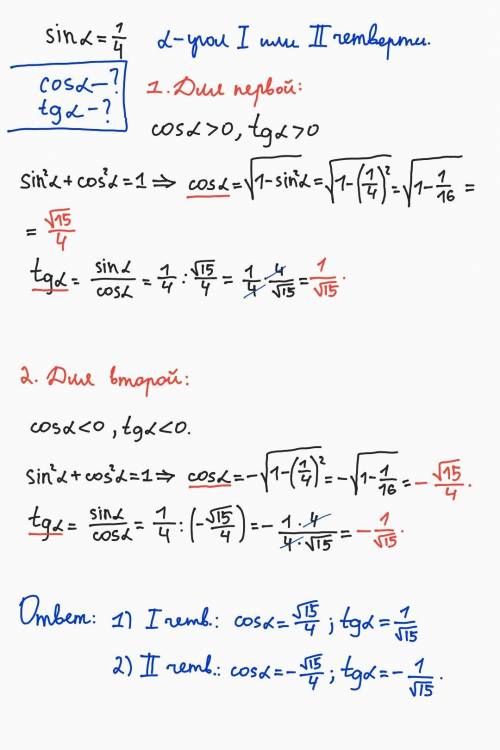 sinα = 1/4   α - угол I или II четверти.
cosα - ?
tgα - ?
1. Для первой:
cosα > 0, tgα > 0
sin²α + cos²α = 1 ⇒ cosα = √(1 - sin²α) = √(1 - (1/4)²) = √(1 - 1/16) =
= √15/4
tgα = sinα/cosα = 1/4 : √15/4 = 1/4 · 4/√15 = 1/√15.
2. Для второй:
cosα < 0, tgα < 0.
sin²α + cos²α = 1 ⇒ cosα = -√(1 - (1/4)²) = -√(1 - 1/16) = - √15/4.
tgα = sinα/cosα = 1/4 : (-√15/4) = - 1·4/4·√15 = - 1/√15.
Ответ: 1) I четв.: cosα = √15/4; tgα = 1/√15
2) II четв.: cosα = - √15/4; tgα = - 1/√15.